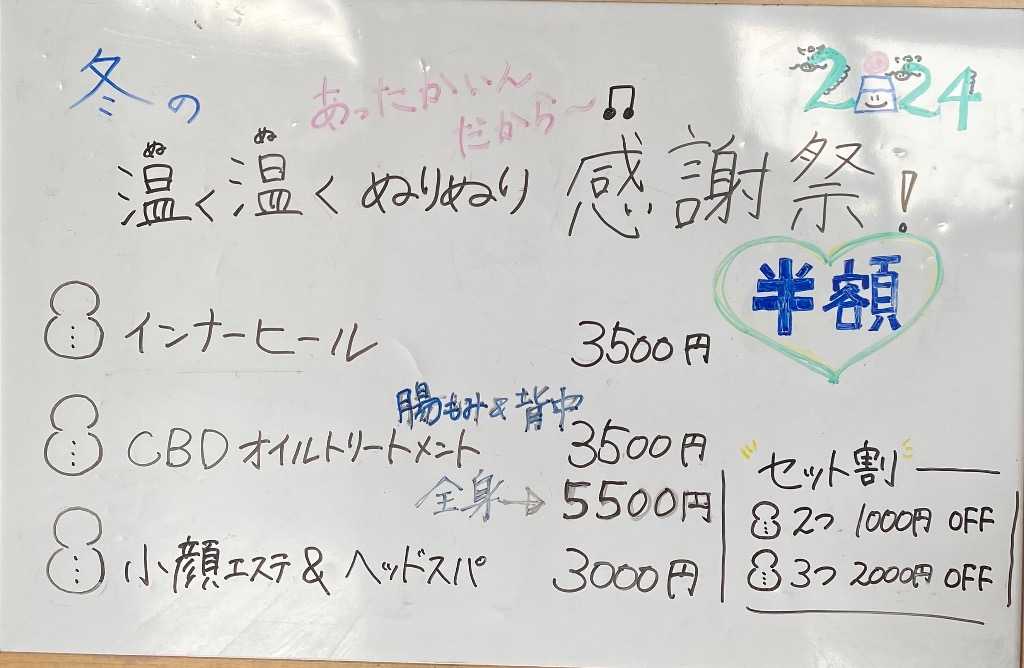 冬の
あったかいん
だから〜♫
2024
ぬ ぬ
温く温くぬりぬり感謝祭!
半額
インナーヒール 3500円
腸もみ&背中
CBDオイルトリートメント 3500円
全身→5500円
小顔エステ&ヘッドスパ 3000円
セット割
2つ 1000円 OFF
3つ 2000円 OFF